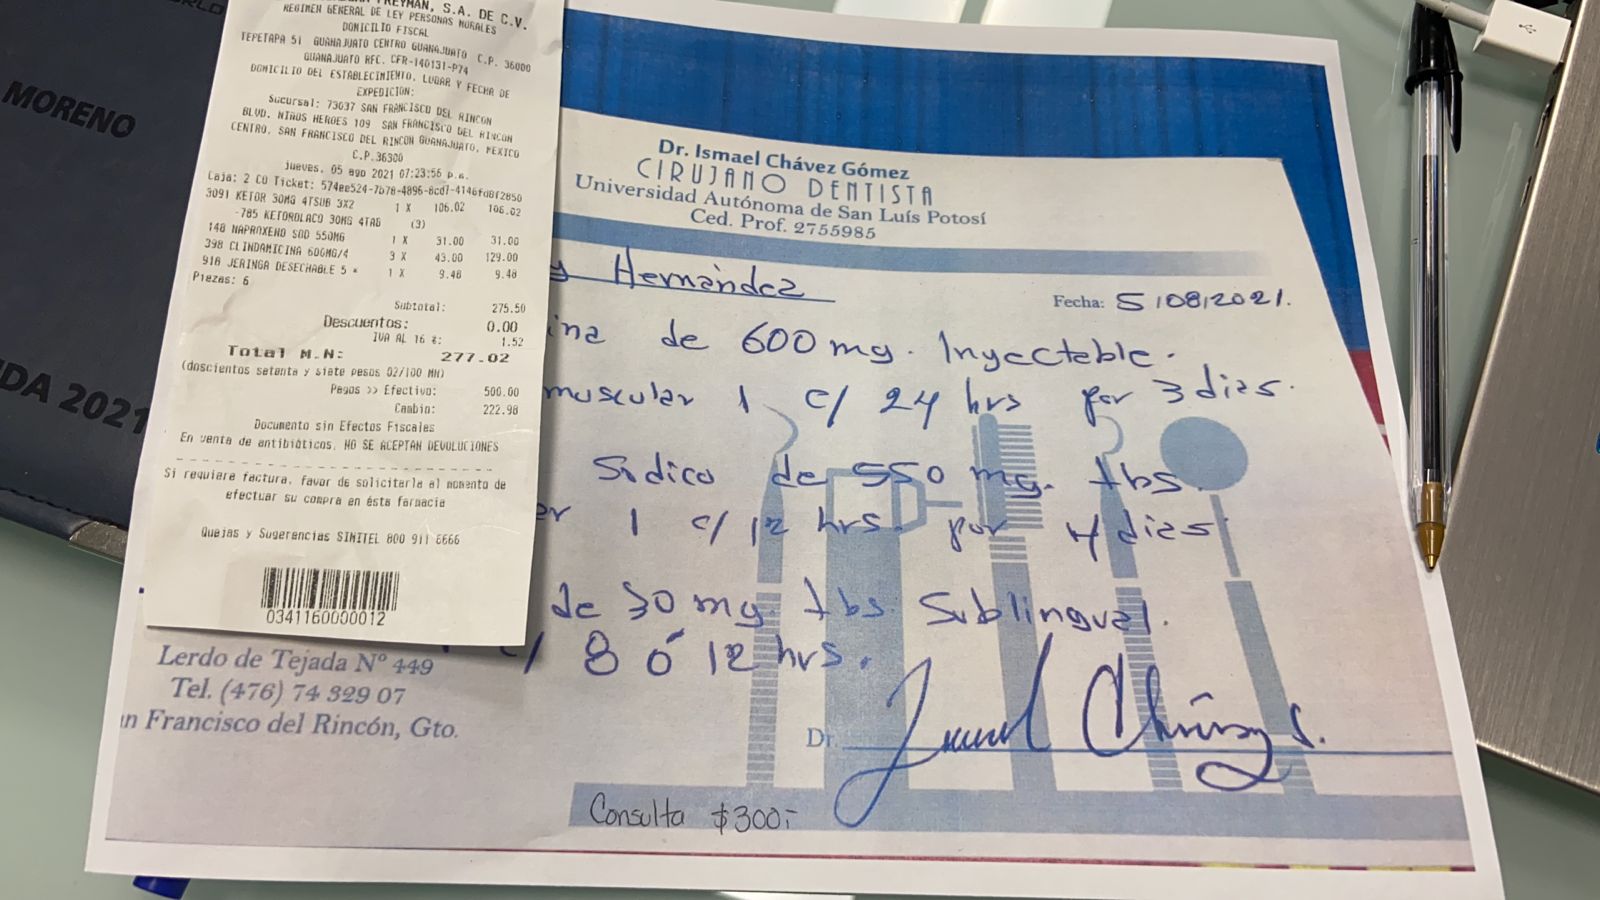 MORENO
DA 2021
FREYMAN, S.A. DE C.V.
REGIMEN GENERAL DE LEY PERSONAS MORALES
DOMICILIO FISCAL
TEPETAPA 51 GUANAJUATO CENTRO GUANAJUATO C.P. 36000
GUANAJUATO RFC. CFR-140131-P74
DOMICILIO DEL ESTABLECIMIENTO, LUGAR Y FECHA DE
EXPEDICIÓN:
Sucursal: 73637 SAN FRANCISCO DEL RINCON
BLVD. NIÑOS HEROES 109 SAN FRANCISCO DEL RINCON
CENTRO, SAN FRANCISCO DEL RINCON GUANAJUATO, MEXICO
C.P.36300
jueves, 05 ago 2021 07:23:56 p.m.
Caja: 2 CO Ticket: 574ee524-7b78-4896-8cd7-4146fd8f2850
3091 KETOR 30MG 4TSUB 3X2 1 X 106.02 106.02
-785 KETOROLACO 30MG 4TAB (3)
148 NAPROXENO SOD 550MG 1 X 31.00 31.00
398 CLINDAMICINA 600MG/4 3 X 43.00 129.00
918 JERINGA DESECHABLE 5 * 1 X 9.48 9.48
Piezas: 6
Subtotal: 275.50
Descuentos: 0.00
IVA AL 16 %: 1.52
Total M.N: 277.02
(doscientos setenta y siete pesos 02/100 MN)
Pagos >> Efectivo: 500.00
Cambio: 222.98
Documento sin Efectos Fiscales
En venta de antibióticos, NO SE ACEPTAN DEVOLUCIONES
Si requiere factura, favor de solicitarla al momento de
efectuar su compra en ésta farmacia
Quejas y Sugerencias SIMITEL 800 911 6666
0341160000012
Dr. Ismael Chávez Gómez
CIRUJANO DENTISTA
Universidad Autónoma de San Luís Potosí
Ced. Prof. 2755985
Hernández
Fecha: 5/08/2021.
ina de 600 mg. Inyectable.
muscular 1 c/ 24 hrs por 3 dias.
Sódico de 550 mg. tbs.
er 1 c/12 hrs. por 4 dias
de 30 mg. tbs. Sublingual.
c/ 8 ó 12 hrs.
Lerdo de Tejada Nº 449
Tel. (476) 74 329 07
n Francisco del Rincón, Gto.
Dr.
Consulta $300.-